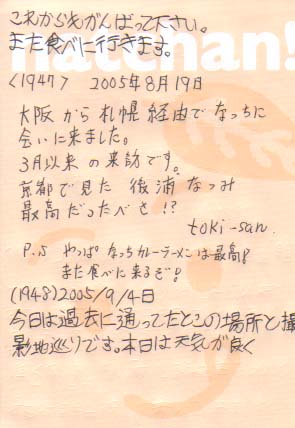 これからもがんばって下さい。
また食べに行きます。
natchan!
<1947> 2005年8月19日
大阪から札幌経由でなっちに
会いに来ました。
3月以来の来訪です。
京都で見た後浦なつみ
最高だったべさ!?
toki-san
P.S やっぱ なっちカレーラーメンは最高!
また食べに来るぞ!
(1948)2005/9/4日
今日は過去に通ってたとこの場所と撮
影地巡りです。本日は天気が良く